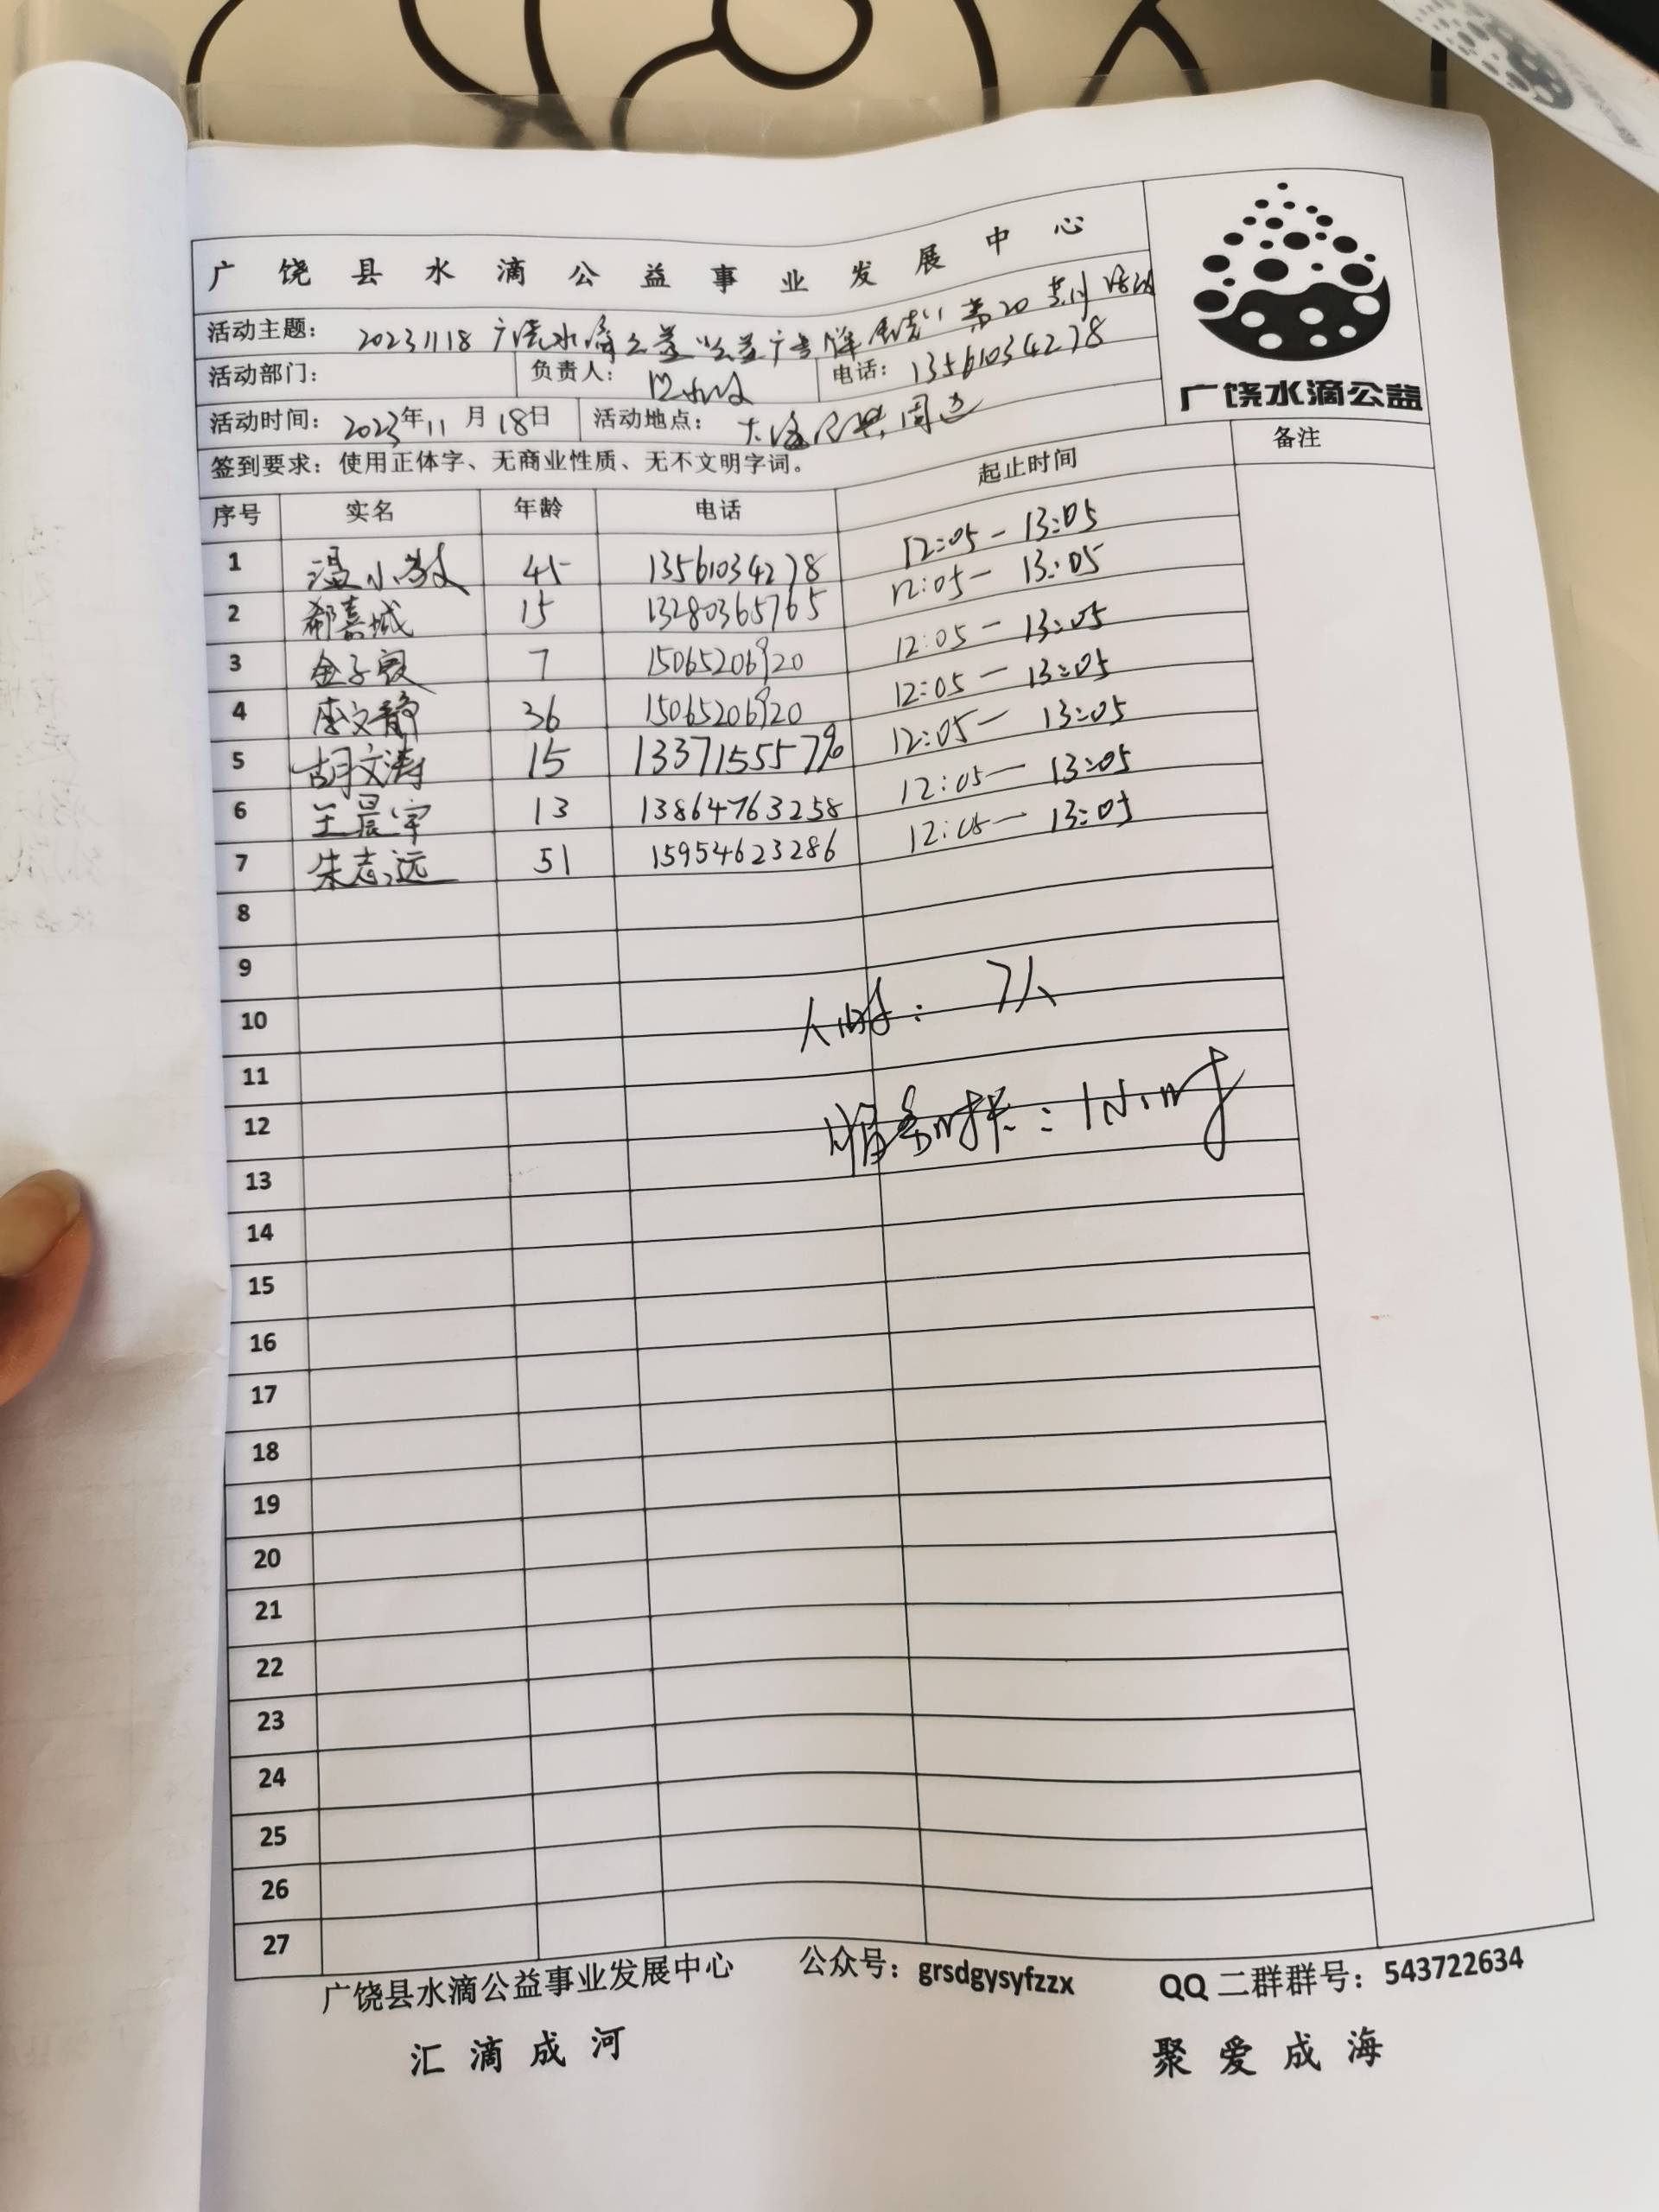 广饶县水滴公益事业发展中心
广饶水滴公益
活动主题： 20231118 广饶水滴公益"公益广告牌 第20 活动
活动部门： 负责人： 电话：13561034278
活动时间：2023年11月18日 活动地点： 周边
签到要求：使用正体字、无商业性质、无不文明字词。
序号 实名 年龄 电话 起止时间 备注
1 温小敏 45 13561034278 12:05-13:05
2 郗嘉城 15 13280365765 12:05-13:05
3 金子 7 15065206920 12:05-13:05
4 李文静 36 15065206920 12:05-13:05
5 胡文涛 15 12:05-13:05
6 王晨宇 13 13864763258 12:05-13:05
7 朱志远 51 15954623286 12:05-13:05
8
9
10
人时：7人
11
12
服务时长：1小时
13
14
15
16
17
18
19
20
21
22
23
24
25
26
27
广饶县水滴公益事业发展中心 公众号：grsdgysyfzzx QQ二群群号：543722634
汇滴成河 聚爱成海